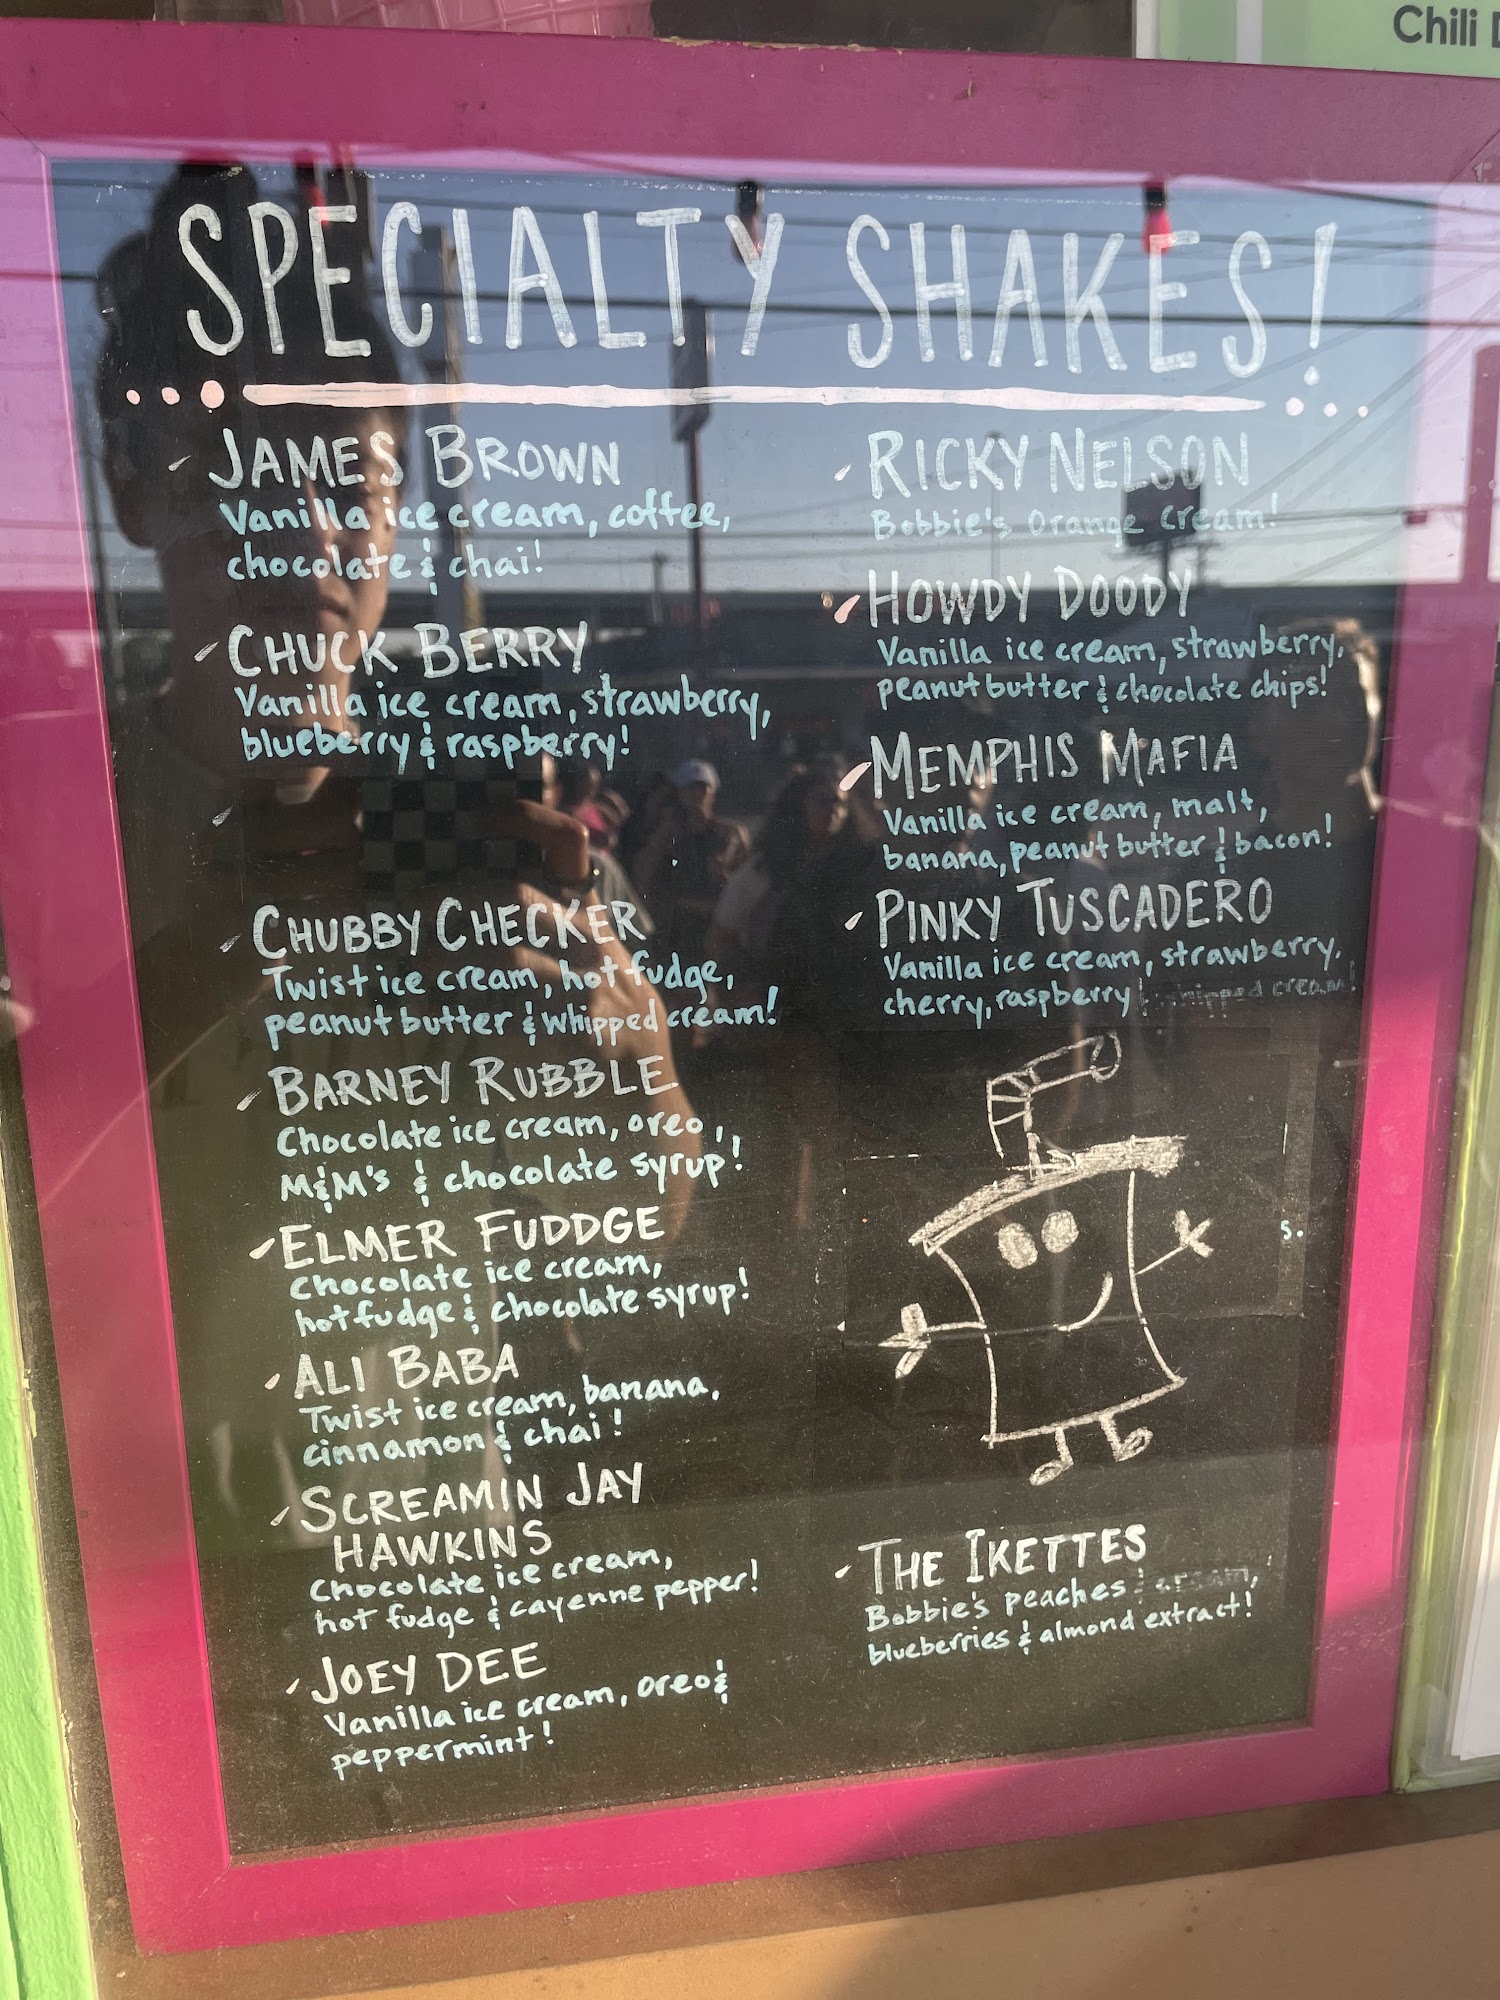 Chili
SPECIALTY SHAKES!
JAMES BROWN
Vanilla ice cream, coffee,
chocolate & chai!
CHUCK BERRY
Vanilla ice cream, strawberry,
blueberry & raspberry!
CHUBBY CHECKER
Twist ice cream, hot fudge,
peanut butter & whipped cream!
BARNEY RUBBLE
Chocolate ice cream, oreo,
M&M's & chocolate syrup!
ELMER FUDDGE
Chocolate ice cream,
hot fudge & chocolate syrup!
ALI BABA
Twist ice cream, banana,
cinnamon & chai!
SCREAMIN JAY
HAWKINS
Chocolate ice cream,
hot fudge & cayenne pepper!
JOEY DEE
Vanilla ice cream, oreo &
peppermint!
RICKY NELSON
Bobbie's Orange Cream!
HOWDY DOODY
Vanilla ice cream, strawberry,
peanut butter & chocolate chips!
MEMPHIS MAFIA
Vanilla ice cream, malt,
banana, peanut butter & bacon!
PINKY TUSCADERO
Vanilla ice cream, strawberry,
cherry, raspberry & whipped cream!
s.
THE IKETTES
Bobbie's peaches & cream,
blueberries & almond extract!